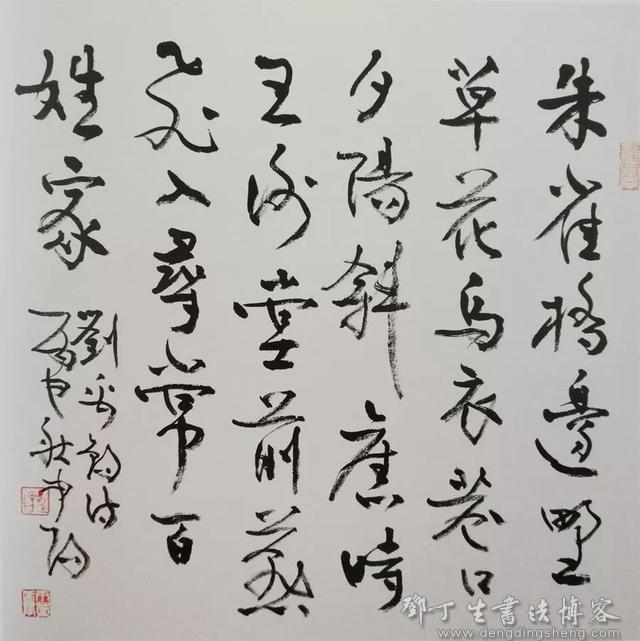 朱雀橋邊野
草花烏衣巷口
夕陽斜舊時
王謝堂前燕
飛入尋常百
姓家
劉禹錫詩
鄧丁生書法博客
www.dengdingsheng.com